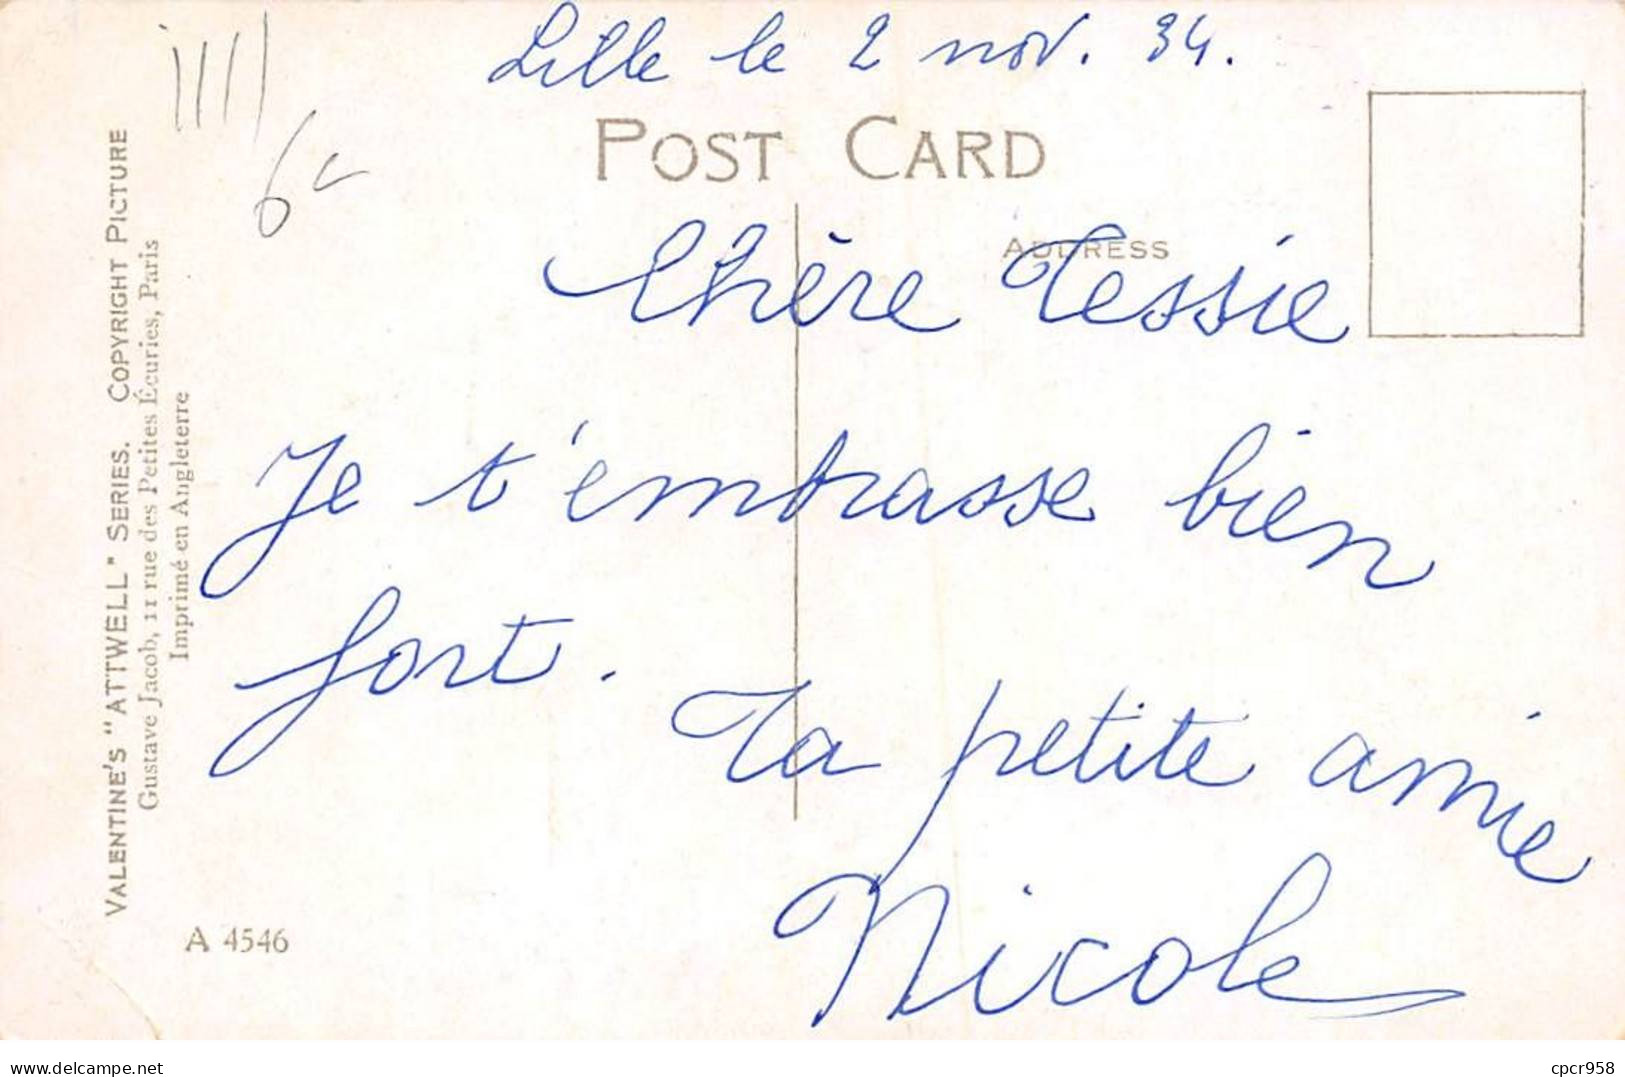 Lille le 2 nov. 34.
POST CARD
ADDRESS
Chère Tessie
Je t'embrasse bien
fort.
Ta petite amie
Nicole
VALENTINE'S "ATTWELL" SERIES. COPYRIGHT PICTURE
Gustave Jacob, 11 rue des Petites Écuries, Paris
Imprimé en Angleterre
A 4546
Visit my website
cpcr958